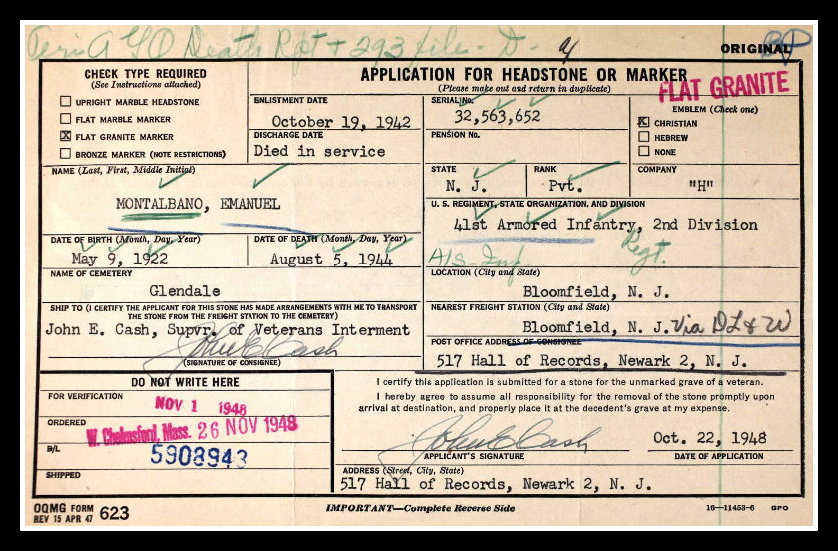 Death Rpt + 293 files - D -
ORIGINAL
CHECK TYPE REQUIRED
(See Instructions attached)
UPRIGHT MARBLE HEADSTONE
FLAT MARBLE MARKER
X FLAT GRANITE MARKER
BRONZE MARKER (NOTE RESTRICTIONS)
APPLICATION FOR HEADSTONE OR MARKER
(Please make out and return in duplicate)
FLAT GRANITE
ENLISTMENT DATE
October 19, 1942
SERIAL No.
32,563,652
EMBLEM (Check one)
X CHRISTIAN
HEBREW
NONE
DISCHARGE DATE
Died in service
PENSION No.
NAME (Last, First, Middle Initial)
MONTALBANO, EMANUEL
STATE
N. J.
RANK
Pvt.
COMPANY
"H"
U. S. REGIMENT, STATE ORGANIZATION, AND DIVISION
41st Armored Infantry, 2nd Division
Regt.
DATE OF BIRTH (Month, Day, Year)
May 9, 1922
DATE OF DEATH (Month, Day, Year)
August 5, 1944
NAME OF CEMETERY
Glendale
LOCATION (City and State)
Bloomfield, N. J.
SHIP TO (I CERTIFY THE APPLICANT FOR THIS STONE HAS MADE ARRANGEMENTS WITH ME TO TRANSPORT
THE STONE FROM THE FREIGHT STATION TO THE CEMETERY)
John E. Cash, Supvr. of Veterans Interment
John E Cash
(SIGNATURE OF CONSIGNEE)
NEAREST FREIGHT STATION (City and State)
Bloomfield, N. J. Via DL & W
POST OFFICE ADDRESS OF CONSIGNEE
517 Hall of Records, Newark 2, N. J.
DO NOT WRITE HERE
FOR VERIFICATION
NOV 1 1948
ORDERED
W. Chelmsford, Mass. 26 NOV 1948
B/L
5908943
SHIPPED
I certify this application is submitted for a stone for the unmarked grave of a veteran.
I hereby agree to assume all responsibility for the removal of the stone promptly upon
arrival at destination, and properly place it at the decedent's grave at my expense.
John E Cash
APPLICANT'S SIGNATURE
Oct. 22, 1948
DATE OF APPLICATION
ADDRESS (Street, City, State)
517 Hall of Records, Newark 2, N. J.
OQMG FORM
REV 15 APR 47 623
IMPORTANT—Complete Reverse Side
16—11453-6 GPO